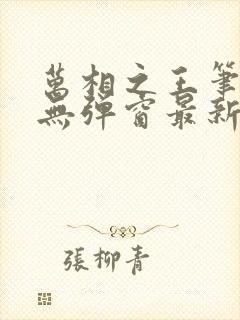 萬相之王筆
無彈窗最新
張柳青